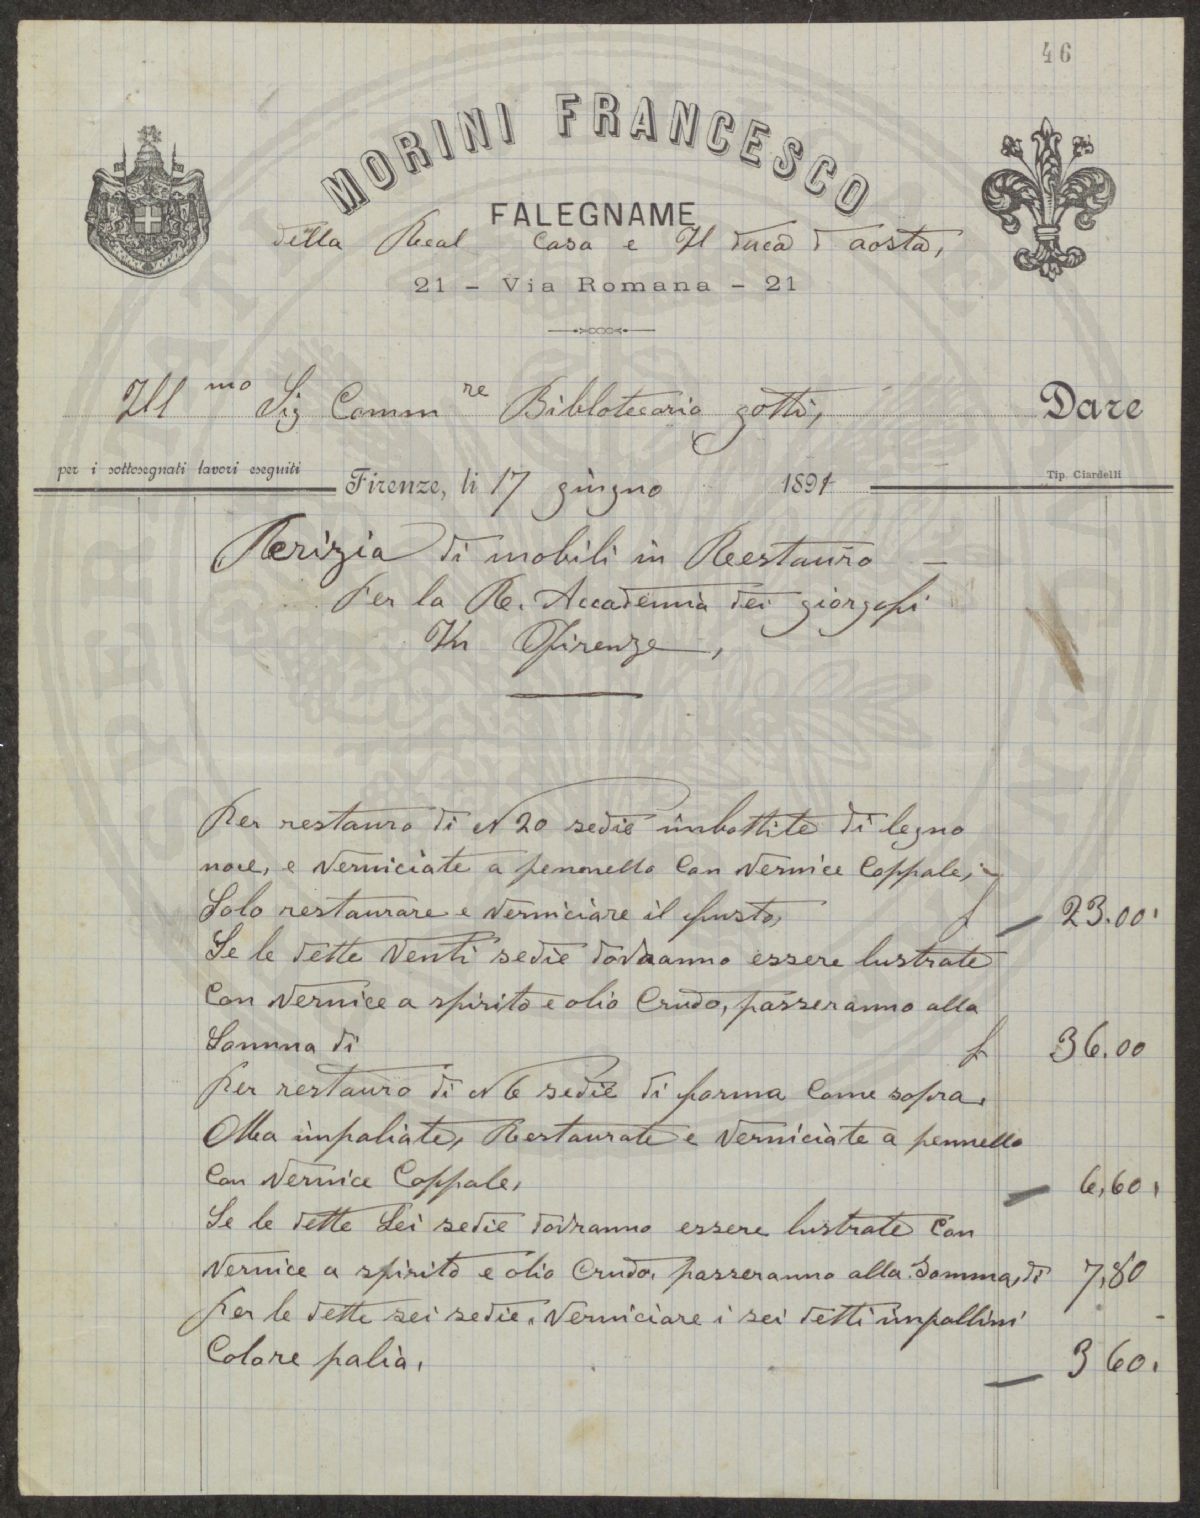 46
MORINI FRANCESCO
FALEGNAME
della Real Casa e Il duca d aosta,
21 - Via Romana - 21
Ill mo Sig Comm re Biblotecario gotti, Dare
per i sottosegnati lavori eseguiti Firenze, li 17 giugno 1891 Tip. Ciardelli
Perizia di mobili in Restauro —
Per la R. Accademia dei giorgofi
In Firenze,
Per restauro di N 20 sedie imbottite di legno
noce, e verniciate a pennello Con Vernice Coppale,
Solo restaurare e verniciare il fusto, £ — 23.00
Se le dette Venti sedie dovranno essere lustrate
Con Vernice a spirito e olio Crudo, passeranno alla
Somma di £ 36.00
Per restauro di N 6 sedie di forma Come sopra,
Ma impaliate, Restaurate e Verniciate a pennello
Con Vernice Coppale, — 6,60
Se le dette Sei sedie dovranno essere lustrate Con
Vernice a spirito e olio Crudo, passeranno alla Somma, di 7,80
Per le dette sei sedie, Verniciare i sei detti impallini
Colore palia, — 3 60